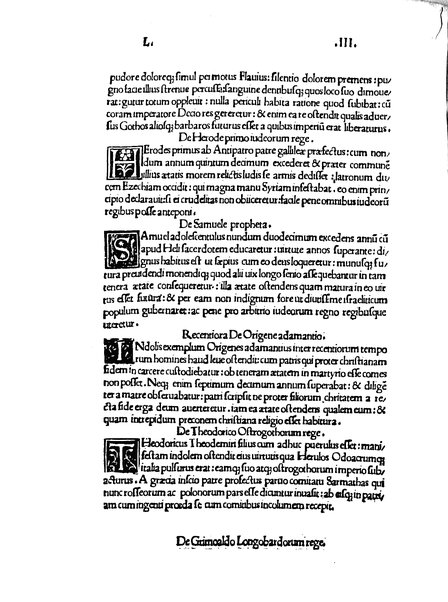 L. .III.
pudore doloreq; simul permotus Flauius: silentio dolorem premens: pu/
gno faciē illius strenue percussā sanguine dentibusq; quos loco suo dimoue
rat: guttur totum oppleuit: nulla periculi habita ratione quod subibat: cū
coram imperatore Decio res gereretur: & enim ea re ostendit qualis aduer
sus Gothos aliosq; barbaros futurus esset a quibus imperiū erat liberaturus.
De Herode primo iudeorum rege.
HErodes primus ab Antipatro patre galilææ præfectus: cum non/
dum annum quintum decimum excederet & præter communē
illius ætatis morem relictis ludis se armis dedisset: latronum du
cem Ezechiam occidit: qui magna manu Syriam infestabat. eo enim prin/
cipio declarauit: si ei crudelitas non obiiceretur: facile pene omnibus iudeorū
regibus posse anteponi.
De Samuele propheta.
SAmuel adolescentulus nundum duodecimum excedens annū cū
apud Heli sacerdotem educaretur: uirtute annos superante: di/
gnus habitus est ut sepius cum eo deus loqueretur: munusq; fu
tura preuidendi monendiq; quod alii uix longo senio assequebantur in tam
tenera ætate consequeretur: illa ætate ostendens quam matura in eo uir
tus esset futura: & per eam non indignum fore ut diutissime israelíticum
populum gubernaret: ac pene pro arbitrio iudeorum regno regibusque
uteretur.
Recentiora De Origene adamantio.
INdolis exemplum Origenes adamantius inter recentiorum tempo
rum homines haud leue ostendit: cum patris qui propter christianam
fidem in carcere custodiebatur: ob teneram ætatem in martyrio esse comes
non posset. Neq; enim septimum decimum annum superabat: & diligē
ter a matre obseruabatur: patri scripsit ne propter filiorum charitatem a re/
cta fide erga deum auerteretur. iam ea ætate ostendens qualem eum: &
quam intrepidum preconem christiana religio esset habitura.
De Theodorico Ostrogothorum rege.
THeodoricus Theodemiri filius cum adhuc puerulus esset: mani/
festam indolem ostendit eius uirtutis qua Herulos Odoacrumq;
italia pulsurus erat: eamq; suo atq; ostrogothorum imperio sub/
acturus. A græcia inscio patre profectus paruo comitatu Sarmathas qui
nunc rosseorum ac polonorum pars esse dicuntur inuasit: ab eisq; in patri/
am cum ingenti præda se cum comitibus incolumem recepit.
De Grimoaldo Longobardorum rege.